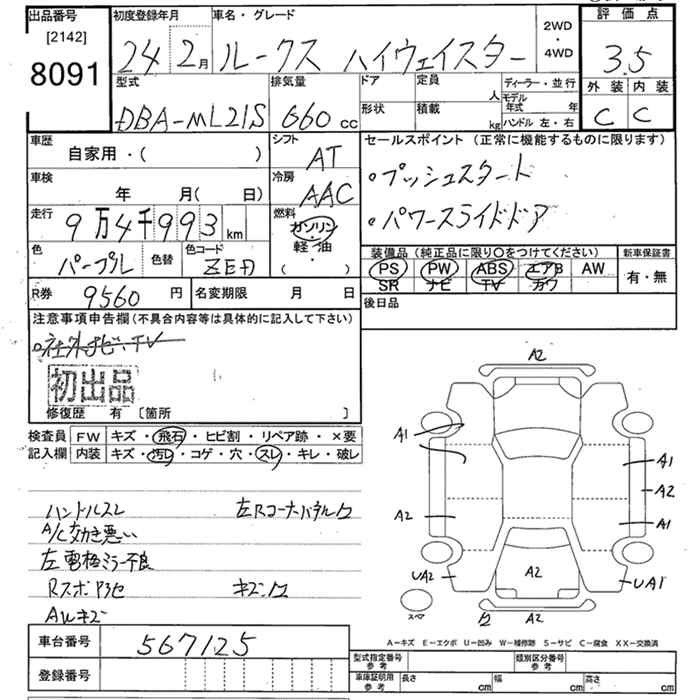 出品番号 初度登録年月 車名・グレード 2WD・4WD 評価点
[2142]
8091
24 2月 ルークス ハイウェイスター 3.5
型式 排気量 ドア 定員 人 ディーラー・並行 外装 内装
形状 積載 kg モデル年式 年 ハンドル 左・右
DBA-ML21S 660 cc C C
車歴 シフト セールスポイント (正常に機能するものに限ります)
自家用・( ) AT
・プッシュスタート
車検 冷房
年 月( 日) AAC
・パワースライドドア
走行 燃料
9万4千993 km ガソリン・軽・油・( )
色 色替 色コード 装備品 (純正品に限り○をつけてください) 新車保証書
パープル ZED PS PW ABS エアB AW 有・無
SR ナビ TV カワ
R券 9560 円 名変期限 月 日 後日品
注意事項申告欄 (不具合内容等は具体的に記入して下さい)
・社外ナビ・TV
初出品
修復歴 有 〔箇所 〕
検査員 FW キズ・飛石・ヒビ割・リペア跡・×要
記入欄 内装 キズ・汚レ・コゲ・穴・スレ・キレ・破レ
A2
A1
A1
A2
A2 A1
UA2 A2 UA1
スペア A2
ハンドルスレ 左Rコーナーパネル凹
A/C効き悪い
左電格ミラー不良
Rスポ色 キズ凹
AWキズ
A-キズ E-エクボ U-凹み W-補修跡 S-サビ C-腐食 XX-交換済
車台番号 567125
型式指定番号 参考 類別区分番号 参考
登録番号
車庫証明用 参考 長さ cm 幅 cm 高さ cm